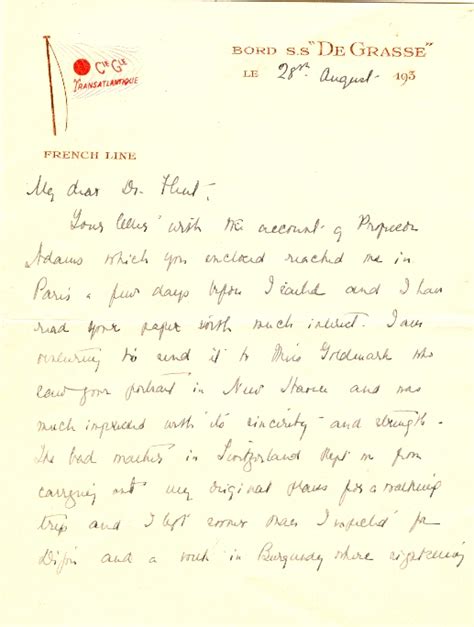 Cie Gle
TRANSATLANTIQUE
FRENCH LINE
BORD S.S "DE GRASSE"
LE 28th August 193
My dear Dr.
Your letter with the account of Professor
Adams which you enclosed reached me in
Paris a few days before I sailed and I have
read your paper with much interest. I am
venturing to send it to Miss Goldmark who
saw your portrait in New Haven and was
much impressed with its sincerity and strength.
The bad weather in Switzerland kept me from
carrying out my original plans for a walking
trip and I left sooner than I for
Dijon and a week in Burgundy where sightseeing